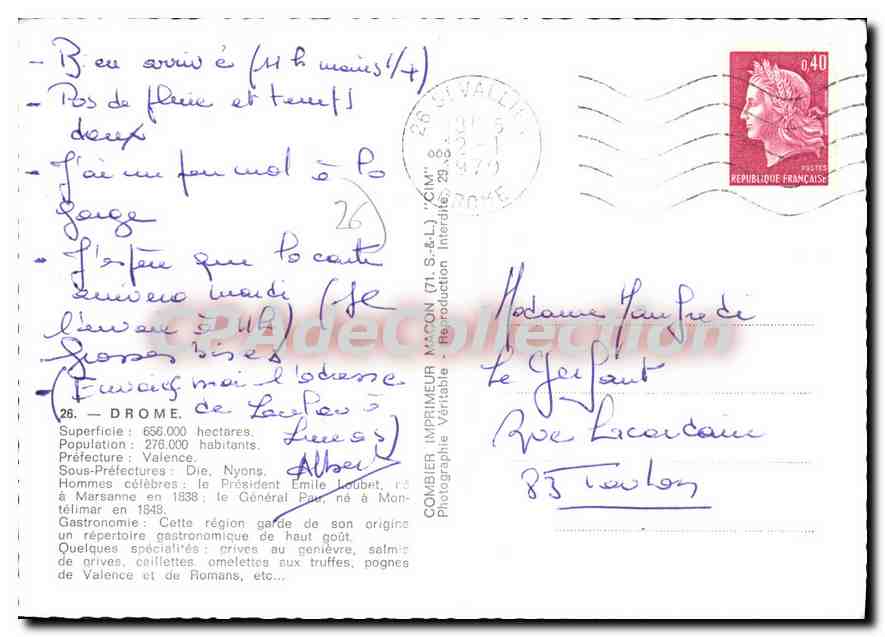 - Bien arrivé (11h moins 1/4)
- Pas de pluie et temps
doux
- J'ai un peu mal à la
gorge
26
- J'espère que la carte
arrivera mardi (Je
l'envoie à 11h)
Grosses bises
- (Envoie moi l'adresse
de à
Albert
26. — DROME.
Superficie : 656.000 hectares.
Population : 276.000 habitants.
Préfecture : Valence.
Sous-Préfectures : Die, Nyons.
Hommes célèbres : le Président Emile Loubet, né
à Marsanne en 1838 ; le Général Pau, né à Mon-
télimar en 1848.
Gastronomie : Cette région garde de son origine
un répertoire gastronomique de haut goût.
Quelques spécialités : grives au genièvre, salmis
de grives, caillettes, omelettes aux truffes, pognes
de Valence et de Romans, etc...
COMBIER IMPRIMEUR MACON (71. S.-&-L.) "CIM"
Photographie Véritable - Reproduction Interdite
26 ST VALLIER
2-1
1970
DROME
0,40
POSTES
RÉPUBLIQUE FRANÇAISE
Madame Manfredi
Le Gerfaut
Rue Lacordaire
83 Toulon
CPAdeCollection